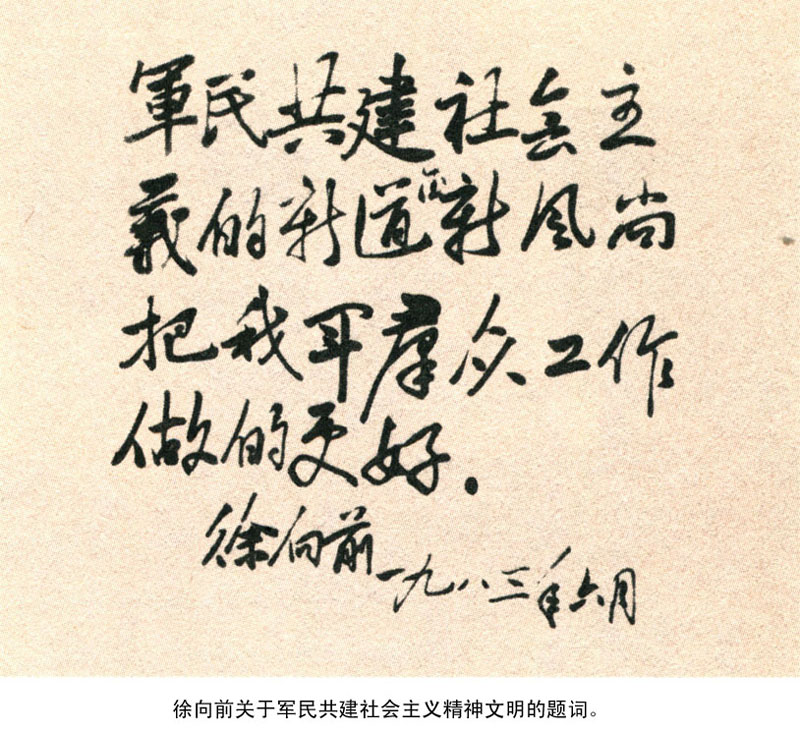 軍民共建社会主
義的新道德新风尚
把我军群众工作
做的更好.
徐向前 一九八三年六月
徐向前关于军民共建社会主义精神文明的题词。